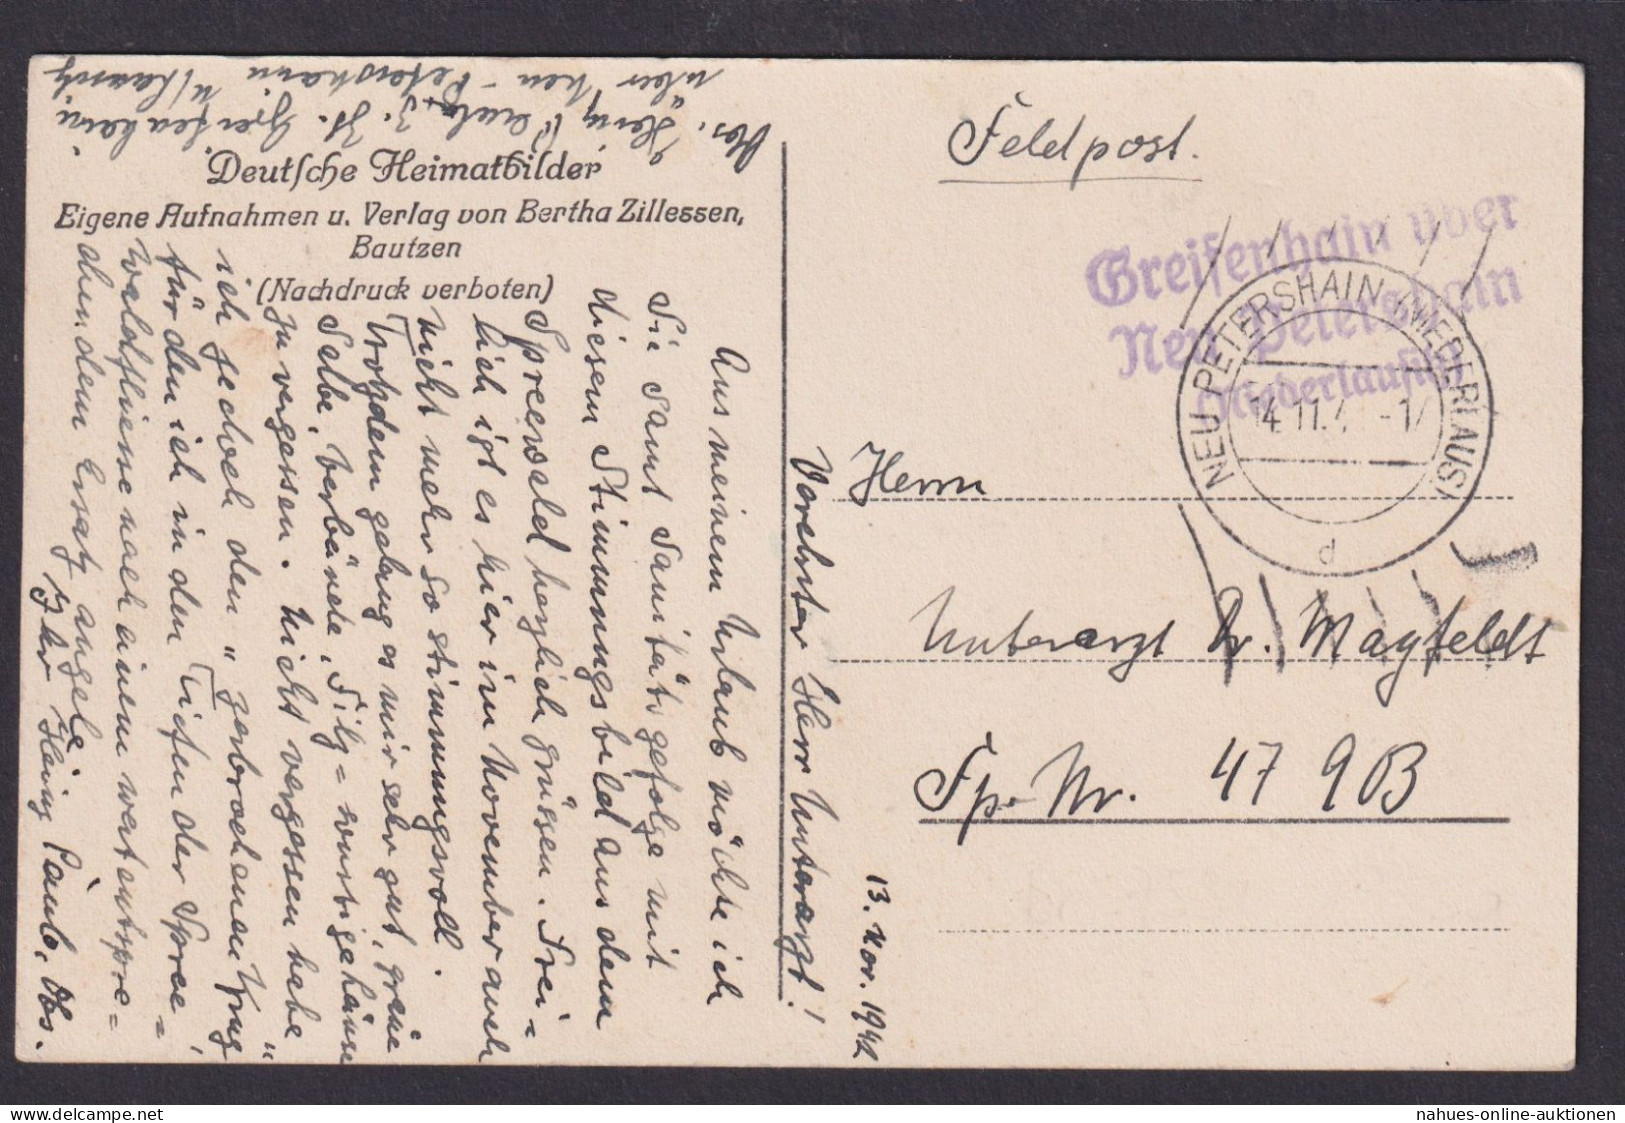 Obs. Heinz
z. Zt. Greifenhain
über Neu-Petershain N/Lausitz
Deutsche Heimatbilder
Eigene Aufnahmen u. Verlag von Bertha Zillessen,
Bautzen
(Nachdruck verboten)
13. Nov. 1942
Verehrter Herr Unterarzt!
Aus meinem Urlaub möchte ich
Sie samt Sanitätsgefolge mit
diesem Stimmungsbild aus dem
Spreewald herzlich grüssen. Frei=
lich ist es hier im November auch
nicht mehr so stimmungsvoll.
Trotzdem gelang es mir sehr gut, grüne
Selbe, Verbände, Filz=
zu vergessen. Nicht vergessen habe
ich jedoch den "zerbrochenen Krug"
für den ich in den Tiefen der Spree=
Waldfliesse nach einem
den Ersatz angele
Ihr Heinz Obs.
Feldpost.
Greifenhain über
Neu Petershain
Niederlausitz
NEU PETERSHAIN (NIEDERLAUSI
14.11.4 -1
d
Herrn
Unterarzt Dr. Mayfeldt
Fp.-Nr. 47 90B
nahues-online-auktionen